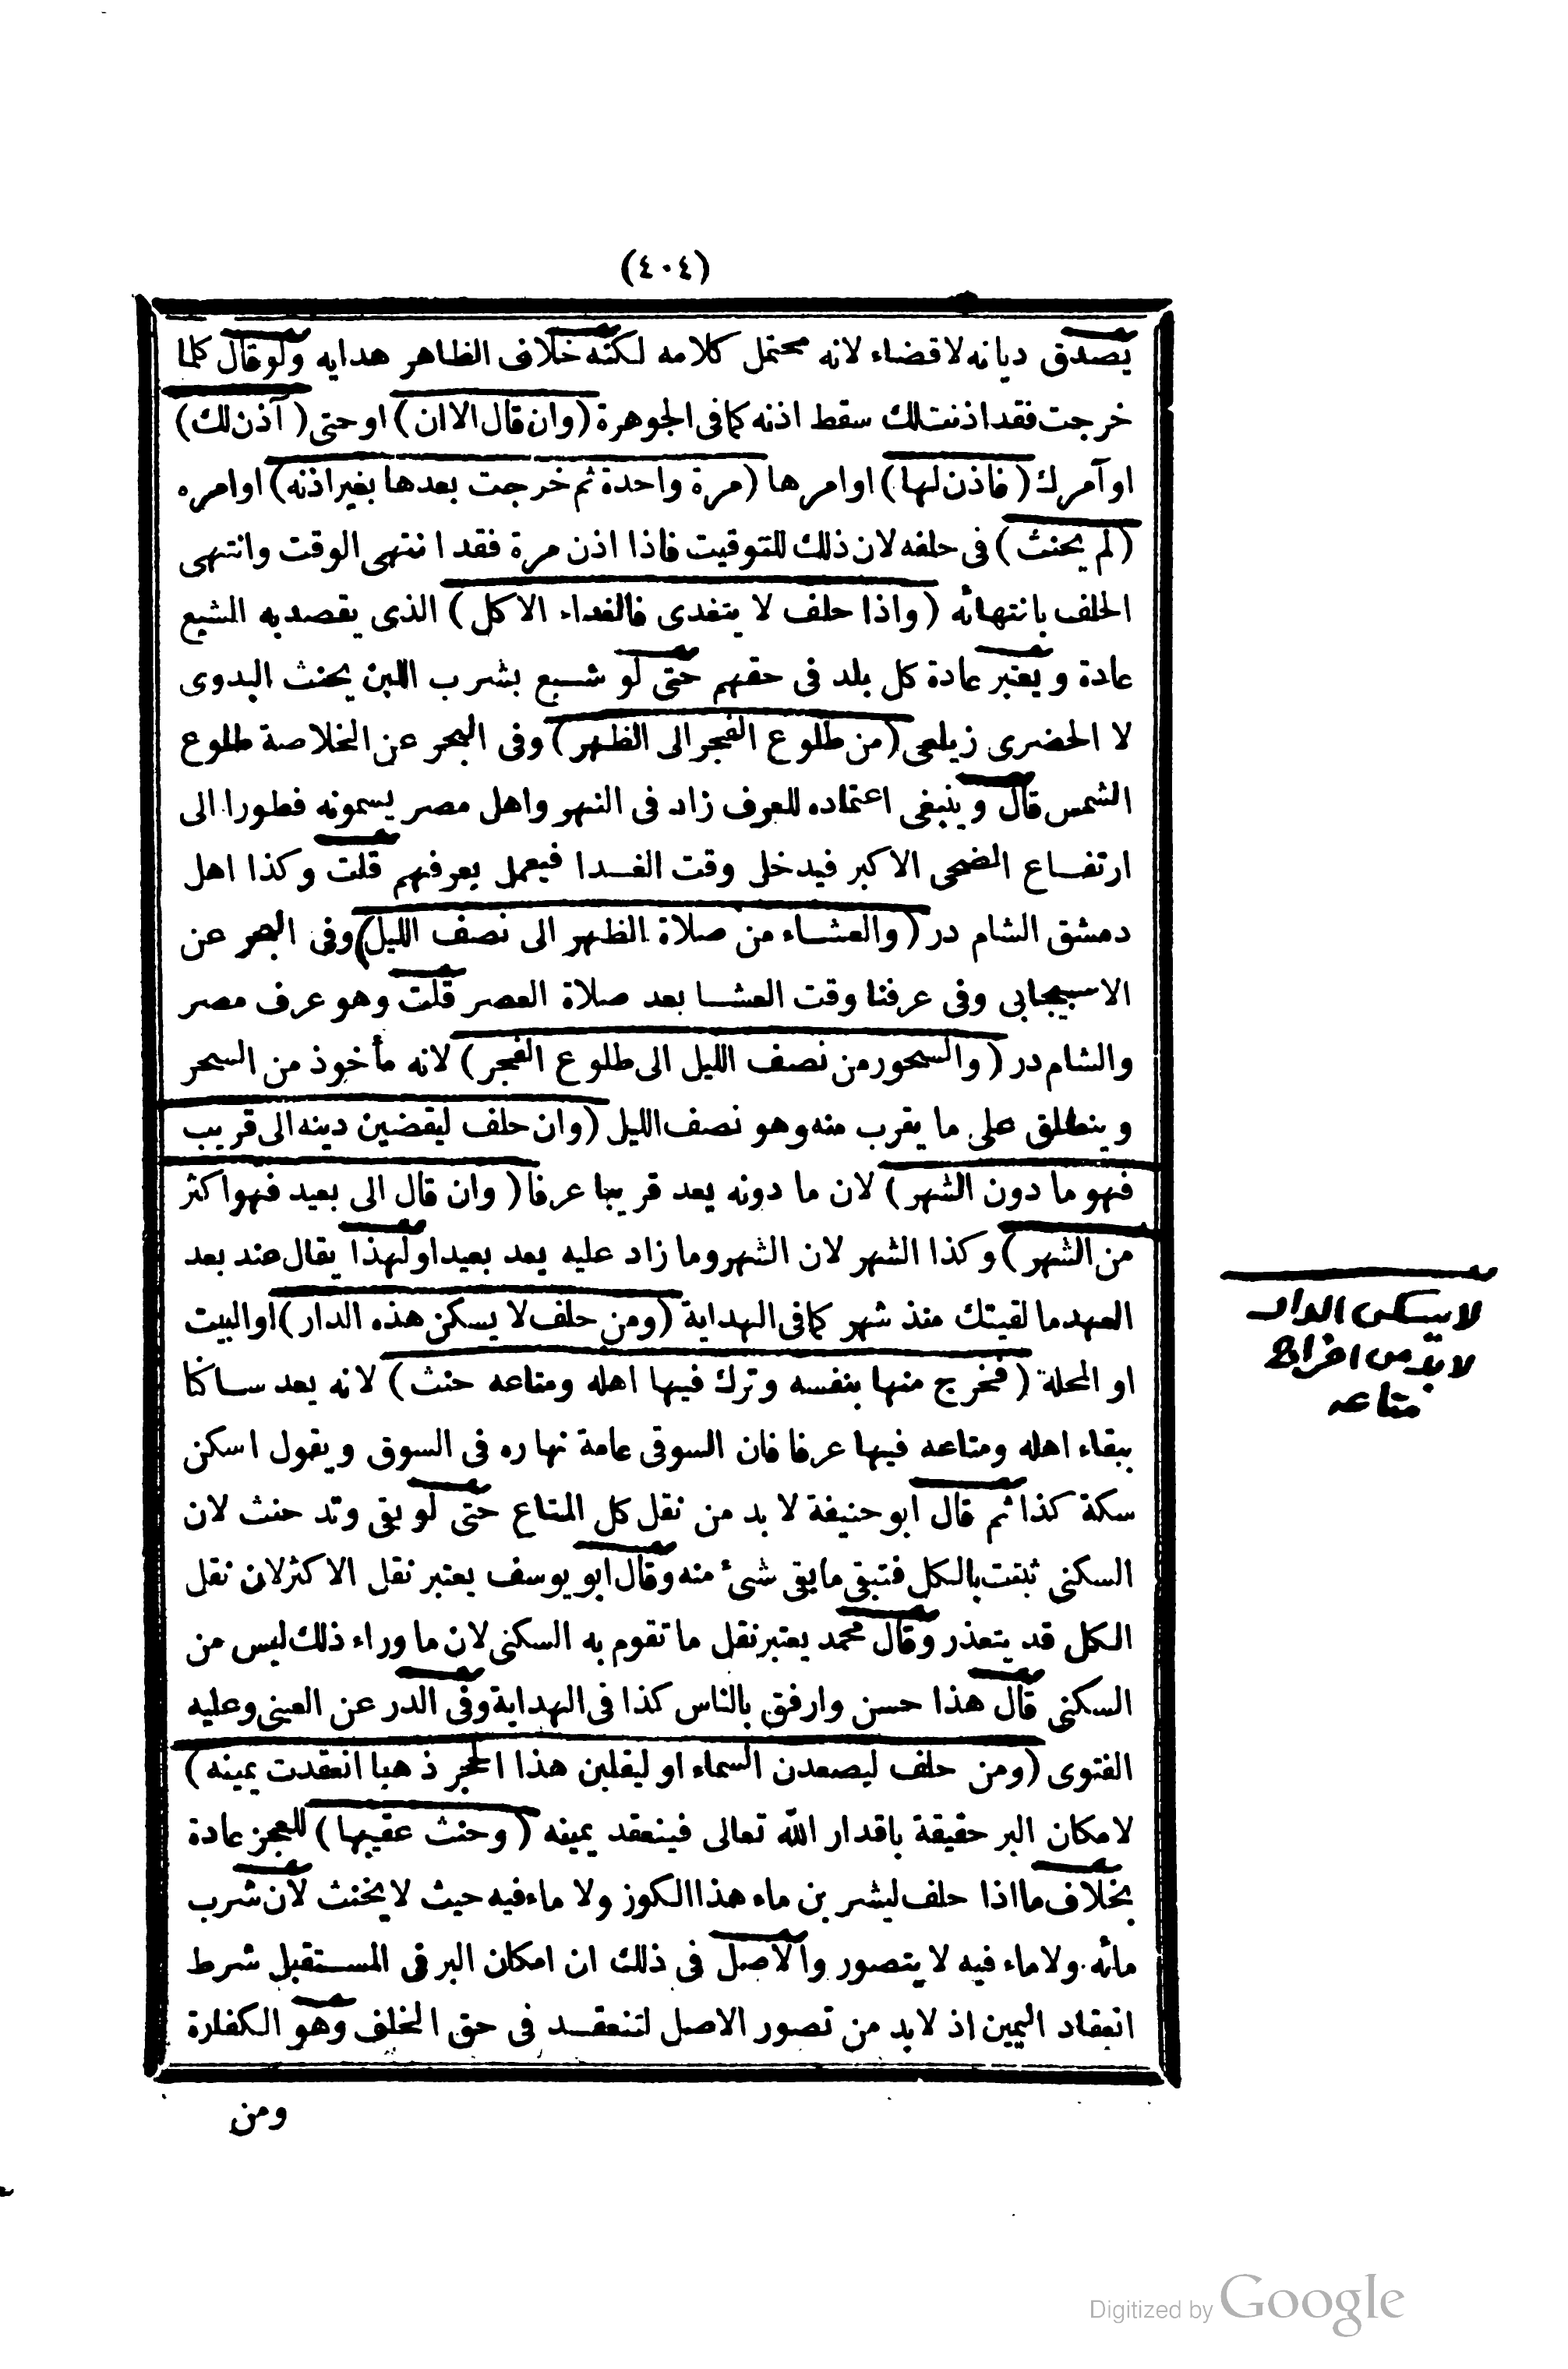 (٤٠٤)
يصدق ديانه لاقضاء لانه محتمل كلامه لكنه خلاف الظاهر هدايه ولو قال كلما
خرجت فقد اذنت لك سقط اذنه كما فى الجوهرة (وان قال الا ان) او حتى (آذن لك)
او آمرك (فاذن لها) او امرها (مرة واحدة ثم خرجت بعدها بغير اذنه) او امره
(لم يحنث) فى حلفه لان ذلك للتوقيت فاذا اذن مرة فقد انتهى الوقت وانتهى
الحلف بانتهائه (واذا حلف لا يتغدى فالغداء الاكل) الذى يقصد به الشبع
عادة ويعتبر عادة كل بلد فى حقهم حتى لو شبع بشرب اللبن يحنث البدوى
لا الحضرى زيلعى (من طلوع الفجر الى الظهر) وفى البحر عن الخلاصة طلوع
الشمس قال وينبغى اعتماده للعرف زاد فى النهر واهل مصر يسمونه فطورا الى
ارتفاع الضحى الاكبر فيدخل وقت الغدا فيعمل بعرفهم قلت وكذا اهل
دمشق الشام در (والعشاء من صلاة الظهر الى نصف الليل) وفى البحر عن
الاسبيجابى وفى عرفنا وقت العشا بعد صلاة العصر قلت وهو عرف مصر
والشام در (والسحور من نصف الليل الى طلوع الفجر) لانه مأخوذ من السحر
وينطلق على ما يقرب منه وهو نصف الليل (وان حلف ليقضين دينه الى قريب
فهو ما دون الشهر) لان ما دونه يعد قريبا عرفا (وان قال الى بعيد فهو اكثر
من الشهر) وكذا الشهر لان الشهر وما زاد عليه يعد بعيدا ولهذا يقال عند بعد
العهد ما لقيتك منذ شهر كما فى الهداية (ومن حلف لا يسكن هذه الدار) او البيت
او المحلة (فخرج منها بنفسه وترك فيها اهله ومتاعه حنث) لانه يعد ساكنا
ببقاء اهله ومتاعه فيها عرفا فان السوقى عامة نهاره فى السوق ويقول اسكن
سكة كذا ثم قال ابو حنيفة لا بد من نقل كل المتاع حتى لو بقى وتد حنث لان
السكنى ثبتت بالكل فتبقى ما بقى شىء منه وقال ابو يوسف يعتبر نقل الاكثر لان نقل
الكل قد يتعذر وقال محمد يعتبر نقل ما تقوم به السكنى لان ما وراء ذلك ليس من
السكنى قال هذا حسن وارفق بالناس كذا فى الهداية وفى الدر عن العينى وعليه
الفتوى (ومن حلف ليصعدن السماء او ليقلبن هذا الحجر ذهبا انعقدت يمينه)
لامكان البر حقيقة باقدار الله تعالى فينعقد يمينه (وحنث عقيبها) للعجز عادة
بخلاف ما اذا حلف ليشربن ماء هذا الكوز ولا ماء فيه حيث لا يحنث لان شرب
مائه ولا ماء فيه لا يتصور والاصل فى ذلك ان امكان البر فى المستقبل شرط
انعقاد اليمين اذ لا بد من تصور الاصل لتنعقد فى حق الخلف وهو الكفارة
ومن
لا يسكن الدار
لا بد من اخراج
متاعه
Digitized by Google